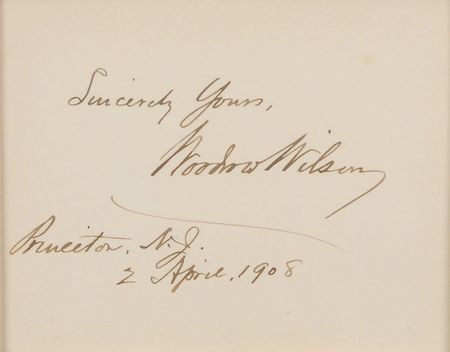 Sincerely Yours,
Woodrow Wilson
Princeton, N.J.
2 April, 1908